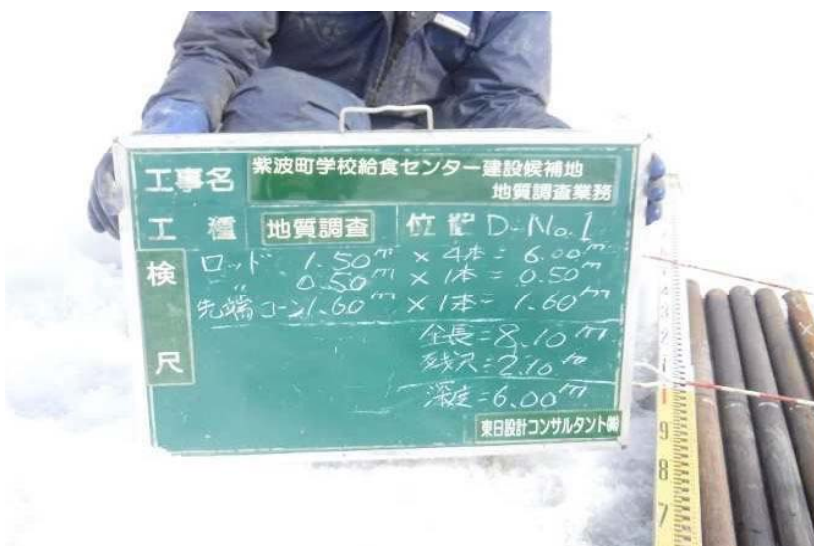 工事名 紫波町学校給食センター建設候補地
地質調査業務
工種 地質調査 位置 D-No.1
検尺
ロッド 1.50m × 4本 = 6.00m
〃 0.50m × 1本 = 0.50m
先端コーン 1.60m × 1本 = 1.60m
全長=8.10m
残尺=2.10m
深度=6.00m
東日設計コンサルタント㈱
9
8
7